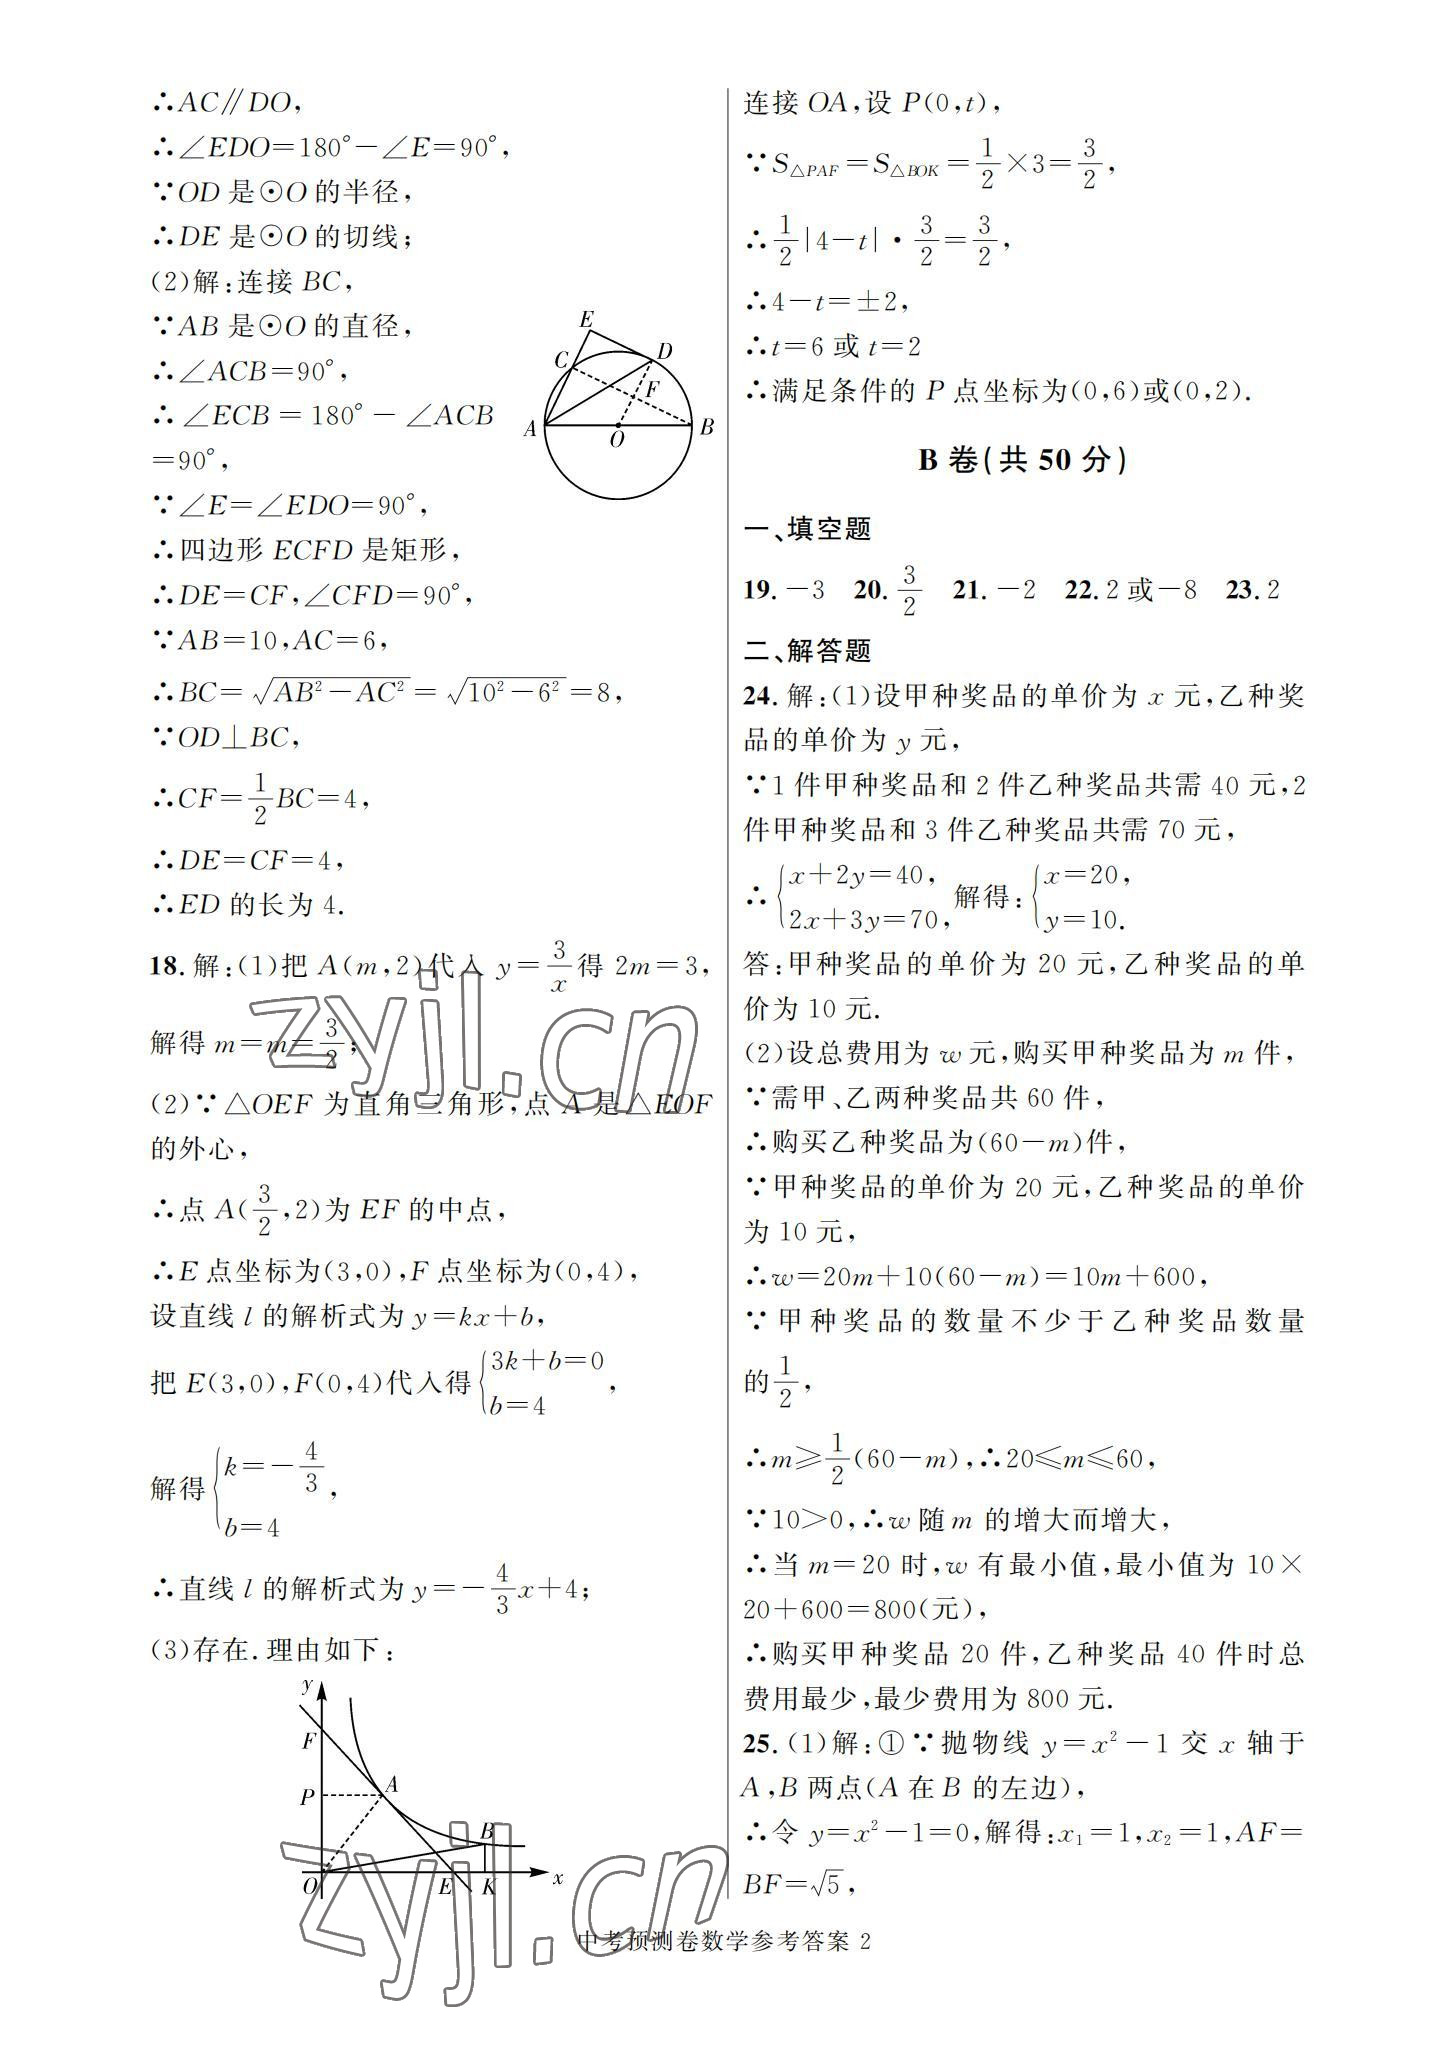 ∴AC∥DO,
∴∠EDO=180°-∠E=90°,
∵OD是⊙O的半径,
∴DE是⊙O的切线;
(2)解:连接BC,
∵AB是⊙O的直径,
∴∠ACB=90°,
∴∠ECB=180°-∠ACB
=90°,
∵∠E=∠EDO=90°,
∴四边形ECFD是矩形,
∴DE=CF,∠CFD=90°,
∵AB=10,AC=6,
∴BC=√(AB²-AC²)=√(10²-6²)=8,
∵OD⊥BC,
∴CF=1/2BC=4,
∴DE=CF=4,
∴ED的长为4.
E
C
D
F
A
O
B
18.解:(1)把A(m,2)代入y=3/x得2m=3,
解得m=m=3/2;
(2)∵△OEF为直角三角形,点A是△EOF
的外心,
∴点A(3/2,2)为EF的中点,
∴E点坐标为(3,0),F点坐标为(0,4),
设直线l的解析式为y=kx+b,
把E(3,0),F(0,4)代入得{3k+b=0
b=4,
解得{k=-4/3
b=4,
∴直线l的解析式为y=-4/3x+4;
(3)存在.理由如下:
y
F
P
A
B
O
E
K
x
连接OA,设P(0,t),
∵S△PAF=S△BOK=1/2×3=3/2,
∴1/2|4-t|·3/2=3/2,
∴4-t=±2,
∴t=6或t=2
∴满足条件的P点坐标为(0,6)或(0,2).
B卷(共50分)
一、填空题
19.-3 20.3/2 21.-2 22.2或-8 23.2
二、解答题
24.解:(1)设甲种奖品的单价为x元,乙种奖
品的单价为y元,
∵1件甲种奖品和2件乙种奖品共需40元,2
件甲种奖品和3件乙种奖品共需70元,
∴{x+2y=40,
2x+3y=70,解得:{x=20,
y=10.
答:甲种奖品的单价为20元,乙种奖品的单
价为10元.
(2)设总费用为w元,购买甲种奖品为m件,
∵需甲、乙两种奖品共60件,
∴购买乙种奖品为(60-m)件,
∵甲种奖品的单价为20元,乙种奖品的单价
为10元,
∴w=20m+10(60-m)=10m+600,
∵甲种奖品的数量不少于乙种奖品数量
的1/2,
∴m≥1/2(60-m),∴20≤m≤60,
∵10>0,∴w随m的增大而增大,
∴当m=20时,w有最小值,最小值为10×
20+600=800(元),
∴购买甲种奖品20件,乙种奖品40件时总
费用最少,最少费用为800元.
25.(1)解:①∵抛物线y=x²-1交x轴于
A,B两点(A在B的左边),
∴令y=x²-1=0,解得:x₁=1,x₂=1,AF=
BF=√5,
中考预测卷数学参考答案 2
zyjl.cn
zyjl.cn